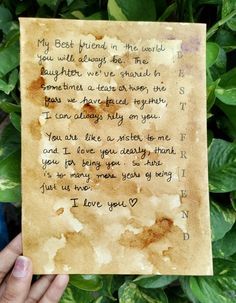 My Best friend in the world
you will always be. The
laughter we've shared &
sometimes a tear or two, the
years we have faced together,
I can always rely on you.
You are like a sister to me
and I love you dearly, thank
you for being you. So here
is to many more years of being
just us two.
I love you ♡
BEST FRIEND